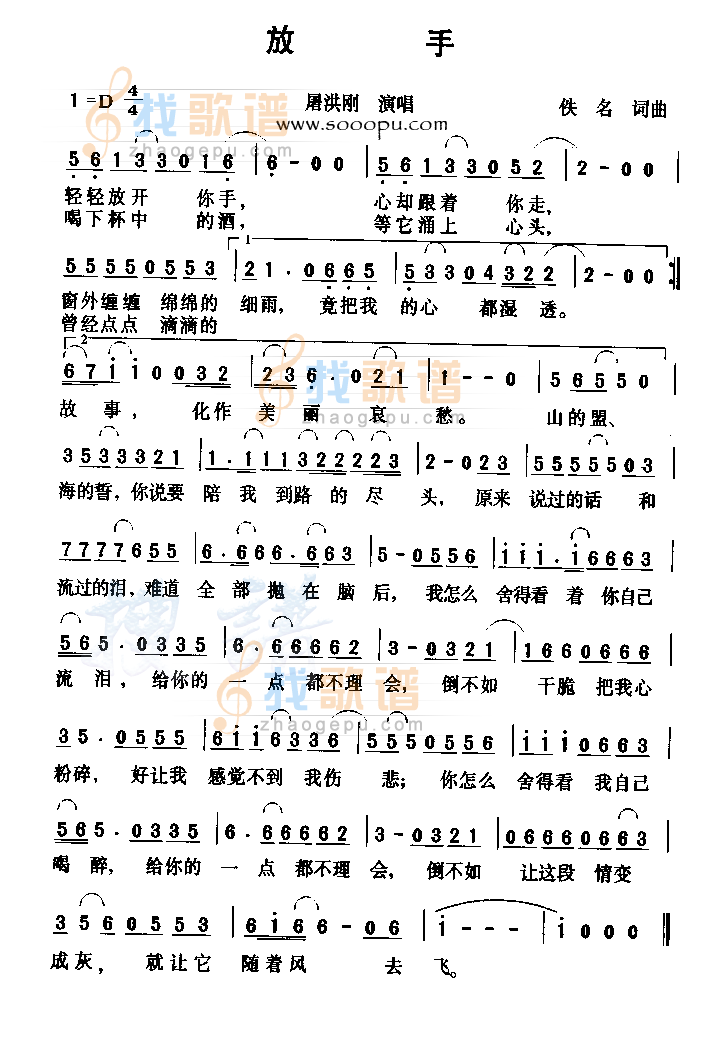 放 手
1=D 4/4 屠洪刚 演唱 佚名 词曲
找歌谱 www.sooopu.com
zhaogepu.com
5 6 1 3 3 0 1 6 | 6 - 0 0 | 5 6 1 3 3 0 5 2 | 2 - 0 0 |
轻轻放开 你手, 心却跟着 你走,
喝下杯中 的酒, 等它涌上 心头,
1
5 5 5 5 0 5 5 3 | 2 1 . 0 6 6 5 | 5 3 3 0 4 3 2 2 | 2 - 0 0 :|
窗外缠缠 绵绵的 细雨, 竟把我 的心 都湿 透。
曾经点点 滴滴的
2
6 7 i i 0 0 3 2 | 2 3 6 . 0 2 1 | 1 - - 0 | 5 6 5 5 0
找歌谱
zhaogepu.com
故 事, 化作 美 丽 哀 愁。 山的盟、
3 5 3 3 3 2 1 | 1 . 1 1 1 3 2 2 2 2 3 | 2 - 0 2 3 | 5 5 5 5 5 0 3 |
海的誓,你说要 陪 我 到路 的 尽 头, 原来 说过的话 和
7 7 7 7 6 5 5 | 6 . 6 6 6 . 6 6 3 | 5 - 0 5 5 6 | i i i . i 6 6 6 3 |
流过的泪,难道 全 部 抛 在 脑 后, 我怎么 舍得看 着 你自己
5 6 5 . 0 3 3 5 | 6 . 6 6 6 6 2 | 3 - 0 3 2 1 | 1 6 6 0 6 6 6 |
找歌谱
zhaogepu.com
流 泪, 给你的 一 点 都不理 会, 倒不如 干脆 把我心
3 5 . 0 5 5 5 | 6 i i 6 3 3 6 | 5 5 5 0 5 5 6 | i i i 0 6 6 3 |
粉碎, 好让我 感觉不到 我伤 悲; 你怎么 舍得看 我自己
5 6 5 . 0 3 3 5 | 6 . 6 6 6 6 2 | 3 - 0 3 2 1 | 0 6 6 6 6 0 6 3 |
喝 醉, 给你的 一 点 都不理 会, 倒不如 让这段 情变
3 5 6 0 5 5 3 | 6 i 6 6 - 0 6 | i - - - | i 0 0 0 ‖
成灰, 就让它 随着风 去 飞。